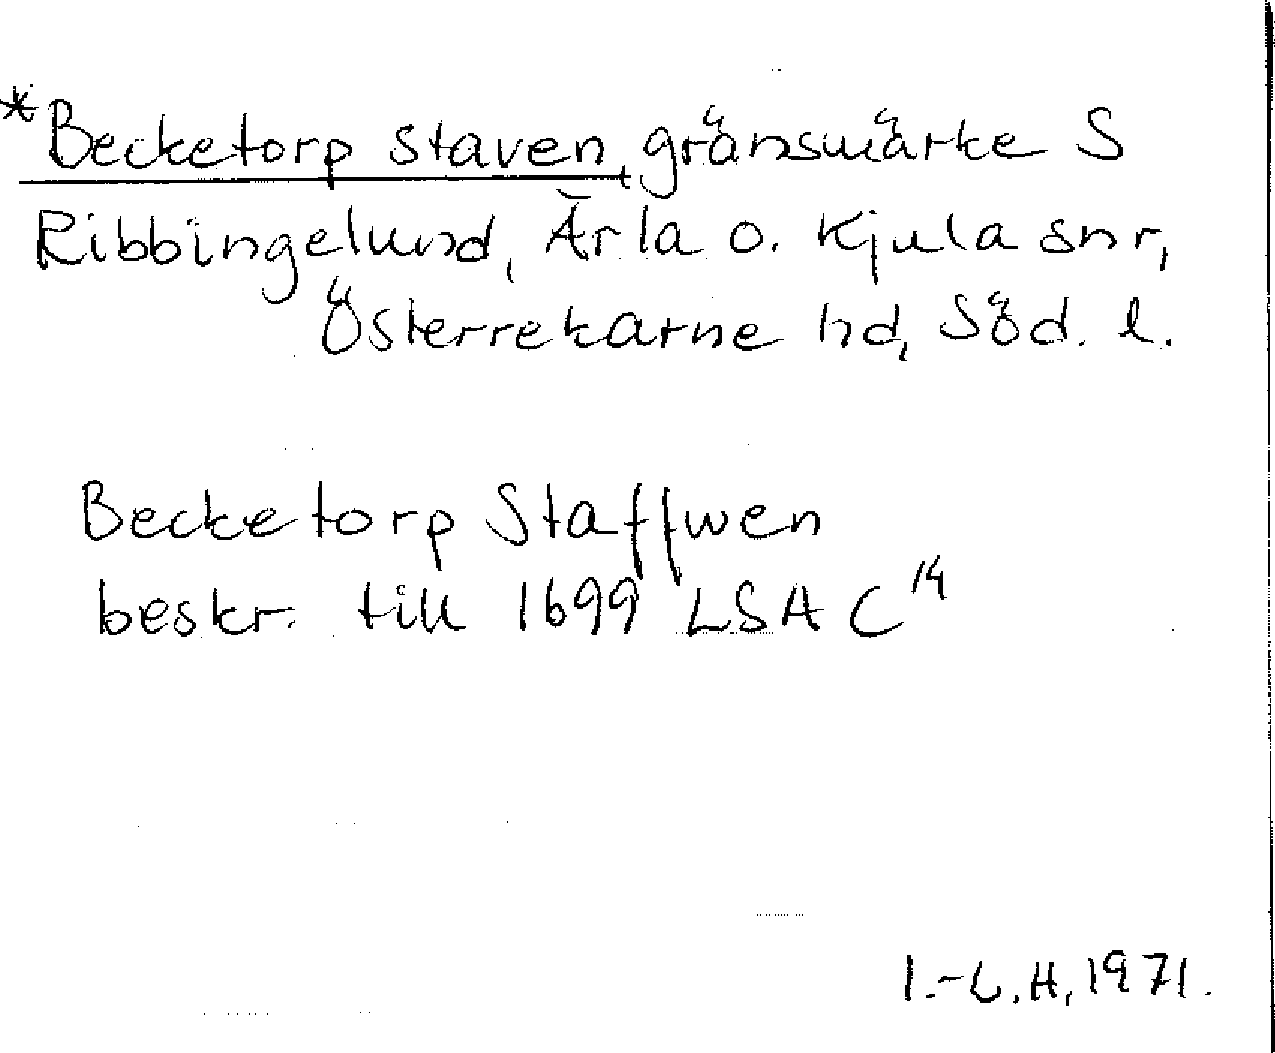 *Becketorp staven, gränsmärke S
Ribbingelund, Ärla o. Kjula snr,
Österrekarne hd, Söd. l.
Becketorp Staffwen
beskr. till 1699 LSA C 14
I.-L. H. 1971.